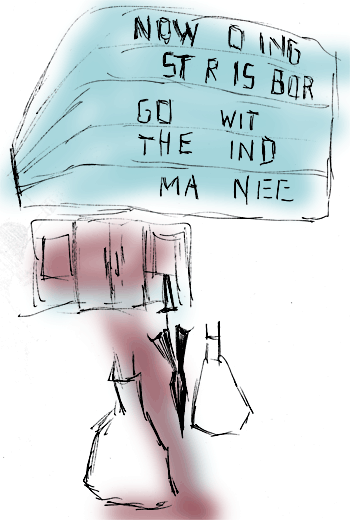 NOW O ING
ST R IS BOR
GO WIT
THE IND
MA NEE